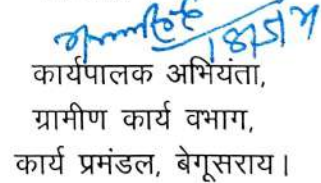 कार्यपालक अभियंता,
ग्रामीण कार्य वभाग,
कार्य प्रमंडल, बेगूसराय।